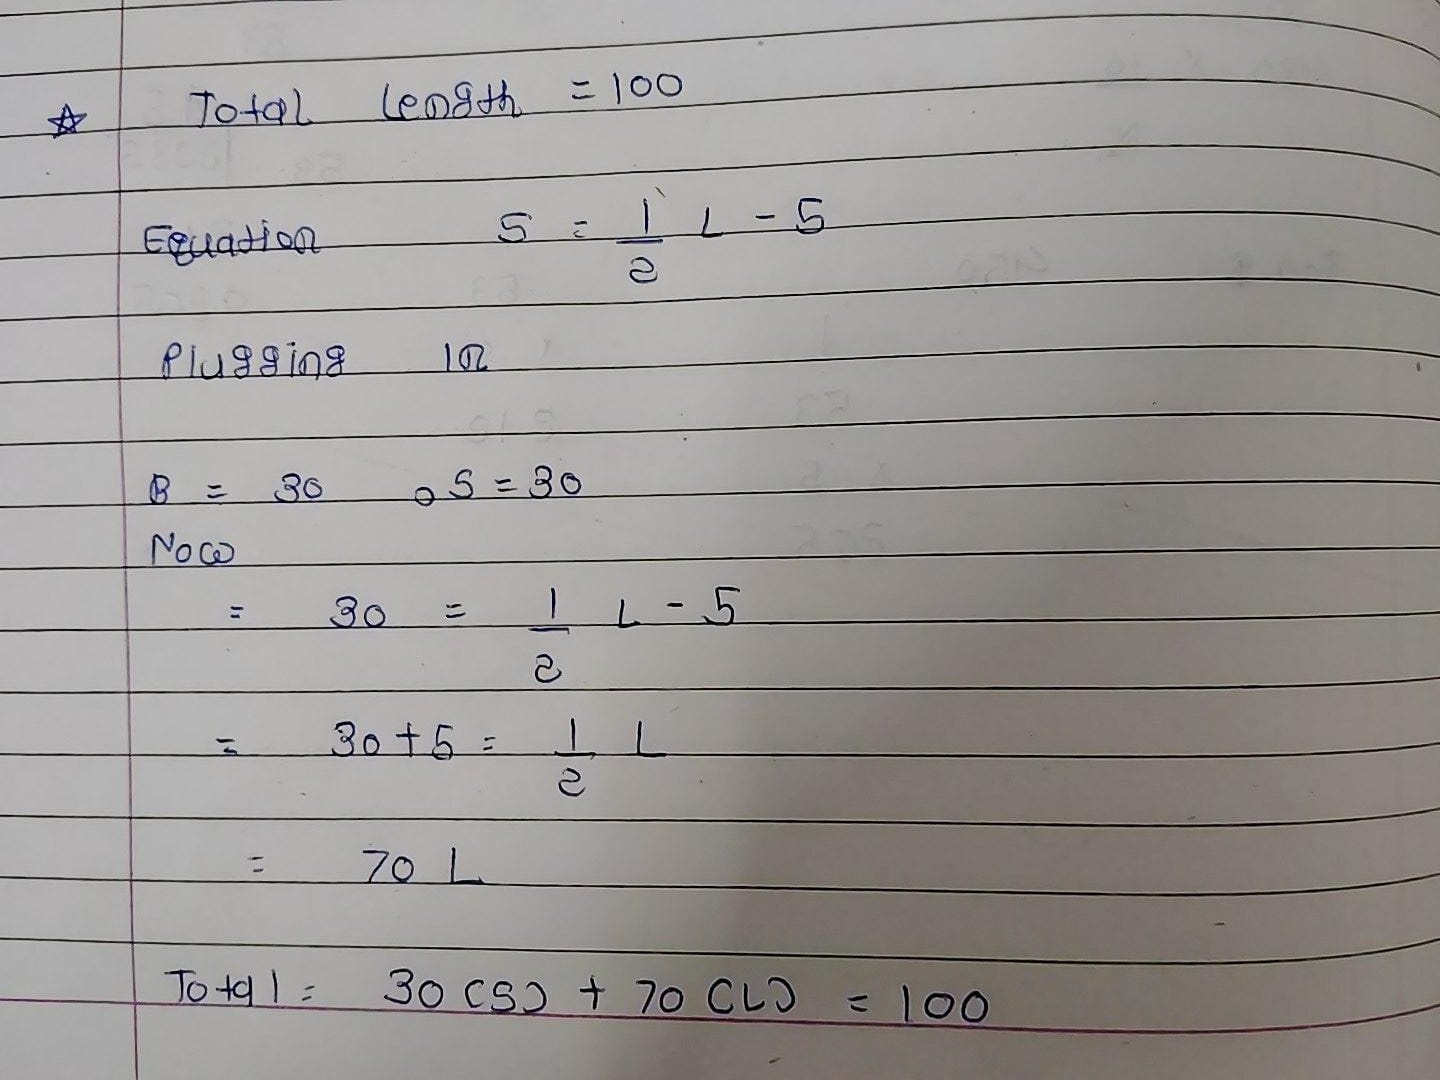 ☆ Total length = 100
Equation S = 1/2 L - 5
Plugging in
B = 30 o S = 30
Now
= 30 = 1/2 L - 5
= 30 + 5 = 1/2 L
= 70 L
Total = 30 (S) + 70 (L) = 100